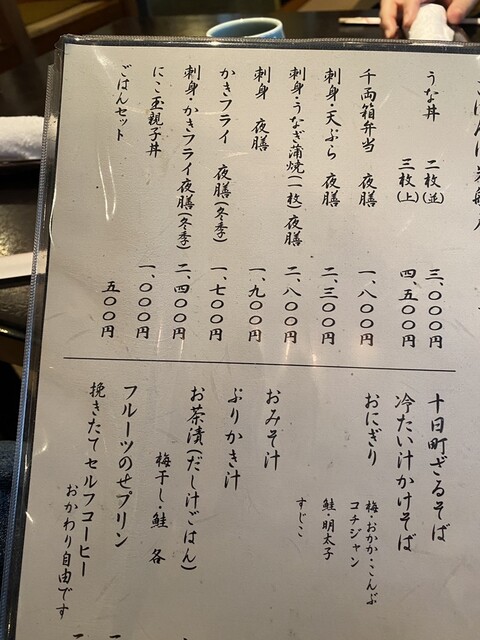 うな丼 二枚(並) 三、〇〇〇円
三枚(上) 四、五〇〇円
千両箱弁当 夜膳 一、八〇〇円
刺身・天ぷら 夜膳 二、三〇〇円
刺身・うなぎ蒲焼(一枚)夜膳 二、八〇〇円
刺身 夜膳 一、九〇〇円
かきフライ 夜膳(冬季) 一、七〇〇円
刺身・かきフライ夜膳(冬季) 二、四〇〇円
にこ玉親子丼 一、〇〇〇円
ごはんセット 五〇〇円
十日町ざるそば
冷たい汁かけそば
おにぎり 梅・おかか・こんぶ
コチジャン
鮭・明太子
すじこ
おみそ汁
ぶりかき汁
お茶漬(だし汁ごはん)
梅干し・鮭 各
フルーツのせプリン
挽きたてセルフコーヒー
おかわり自由です